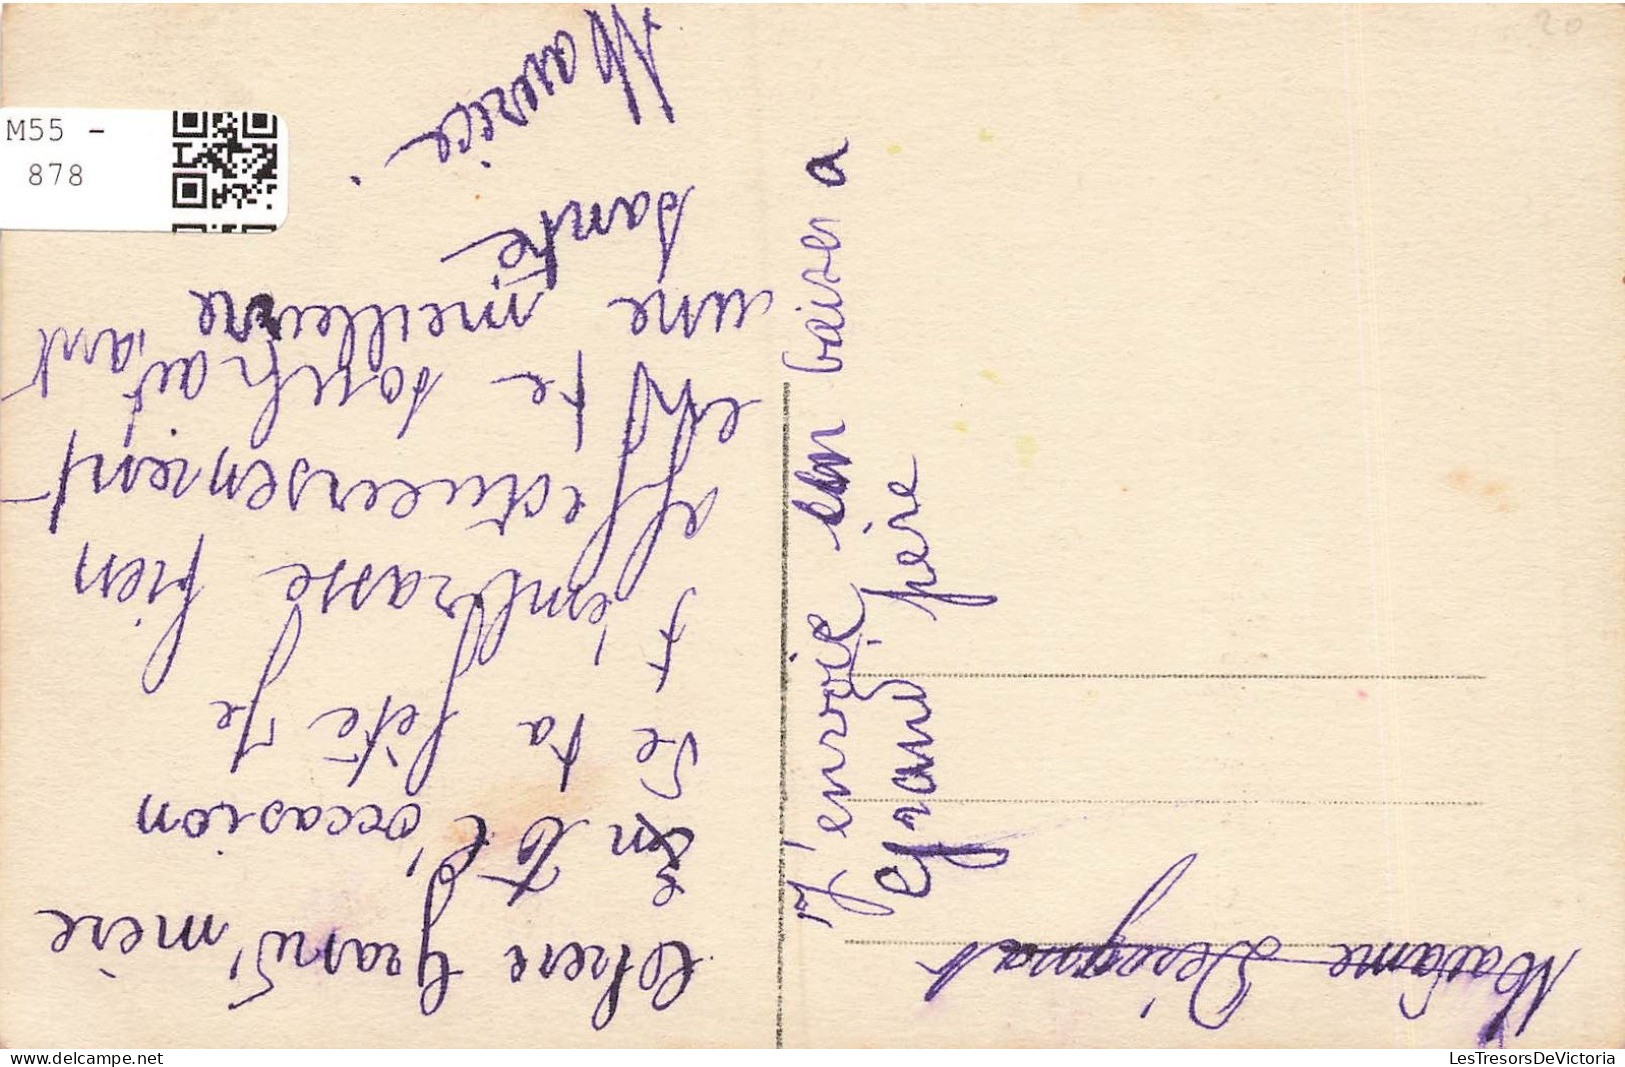 Madame
Chere Grand'mère
En l'occasion
de ta fête je
t'embrasse bien
affectueusement
et te souhaitant
une meilleure
santé
Maurice.
J'envoie un baiser a
Grand père
M55 -
878
20
LesTresorsDeVictoria
delcampe.net